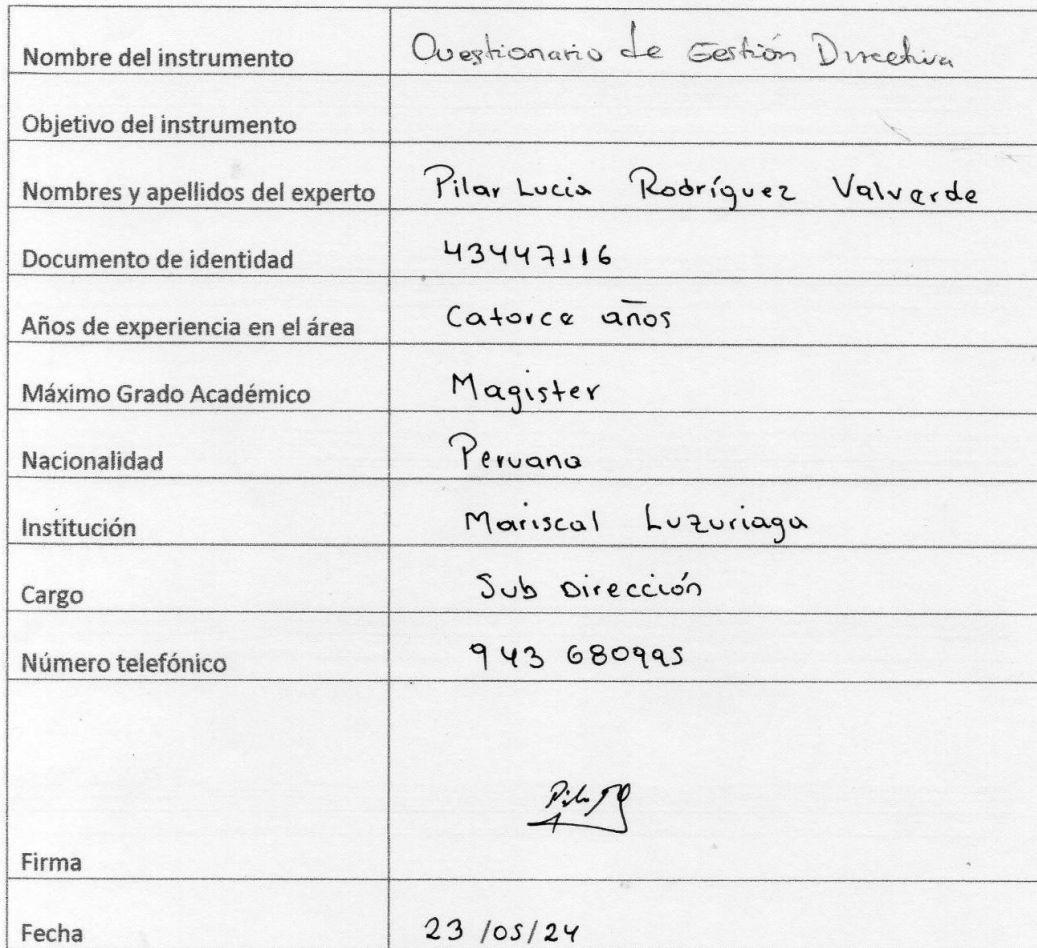 Nombre del instrumento Cuestionario de Gestión Directiva
Objetivo del instrumento
Nombres y apellidos del experto Pilar Lucia Rodríguez Valverde
Documento de identidad 43447116
Años de experiencia en el área Catorce años
Máximo Grado Académico Magister
Nacionalidad Peruana
Institución Mariscal Luzuriaga
Cargo Sub Dirección
Número telefónico 943 680995
Firma
Fecha 23/05/24